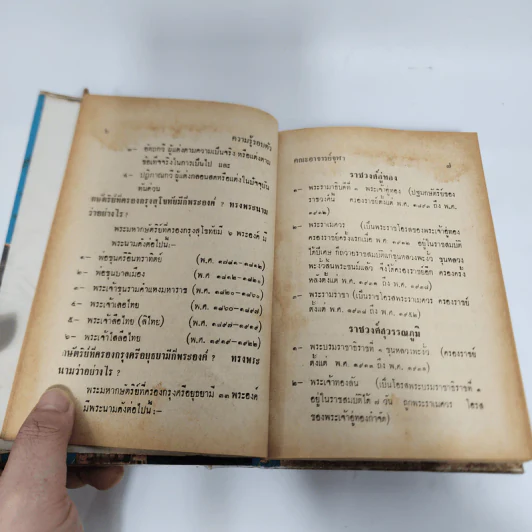 ความรู้รอบตัว
๓– อัตถกวี ผู้แต่งตามความเป็นจริง หรือแต่งตาม
ข้อเท็จจริงในการเป็นไป และ
๔– ปฏิภาณกวี ผู้แต่งกลอนสดหรือแต่งในปัจจุบัน
ทันด่วน
กษัตริย์ที่ครองกรุงสุโขทัยมีกี่พระองค์ ? ทรงพระนาม
ว่าอย่างไร ?
พระมหากษัตริย์ที่ครองกรุงสุโขทัยมี ๖ พระองค์ มี
พระนามดังต่อไปนี้:–
๑– พ่อขุนศรีอินทราทิตย์
๒– พ่อขุนบาลเมือง
๓– พระเจ้าขุนรามคำแหงมหาราช (พ.ศ. ๑๘๒๐–๑๘๖๐)
๔– พระเจ้าเลอไทย
๕– พระเจ้าลือไทย (ลิไทย)
๖– พระเจ้าไสลือไทย
กษัตริย์ที่ครองกรุงศรีอยุธยามีกี่พระองค์ ? ทรงพระ
นามว่าอย่างไร ?
พระมหากษัตริย์ที่ครองกรุงศรีอยุธยามี ๓๓ พระองค์
มีพระนามดังต่อไปนี้:–
คณะอาจารย์จุฬา
๗
ราชวงศ์อู่ทอง
๑– พระรามาธิบดีที่ ๑ พระเจ้าอู่ทอง (ปฐมกษัตริย์ของ
ราชวงศ์นี้ ครองราชย์ตั้งแต่ พ.ศ. ๑๘๙๓ ถึง พ.ศ.
๑๙๑๒)
๒– พระราเมศวร (เป็นพระราชโอรสของพระเจ้าอู่ทอง
ครองราชย์ครั้งแรกเมื่อ พ.ศ. อยู่ในราชสมบัติ
ได้ปีเศษ ก็ถวายราชสมบัติแก่ขุนหลวงพะงั่ว ขุนหลวง
พะงั่วสิ้นพระชนม์แล้ว จึงได้ครองราชย์อีก ครองครั้ง
หลังตั้งแต่ พ.ศ. ๑๙๓๑ ถึง พ.ศ. ๑๙๓๘)
๓– พระรามราชา (เป็นราชโอรสพระราเมศวร ครองราชย์
ตั้งแต่ พ.ศ. ๑๙๓๘ ถึง พ.ศ.
ราชวงศ์สุวรรณภูมิ
๑– พระบรมราชาธิราชที่ ๑ ขุนหลวงพะงั่ว (ครองราชย์
ตั้งแต่ พ.ศ. ๑๙๑๓ ถึง พ.ศ. ๑๙๓๑)
๒– พระเจ้าทองลัน (เป็นโอรสพระบรมราชาธิราชที่ ๑
อยู่ในราชสมบัติได้ ๗ วัน ถูกพระราเมศวร โอรส
ของพระเจ้าอู่ทองกำจัด)